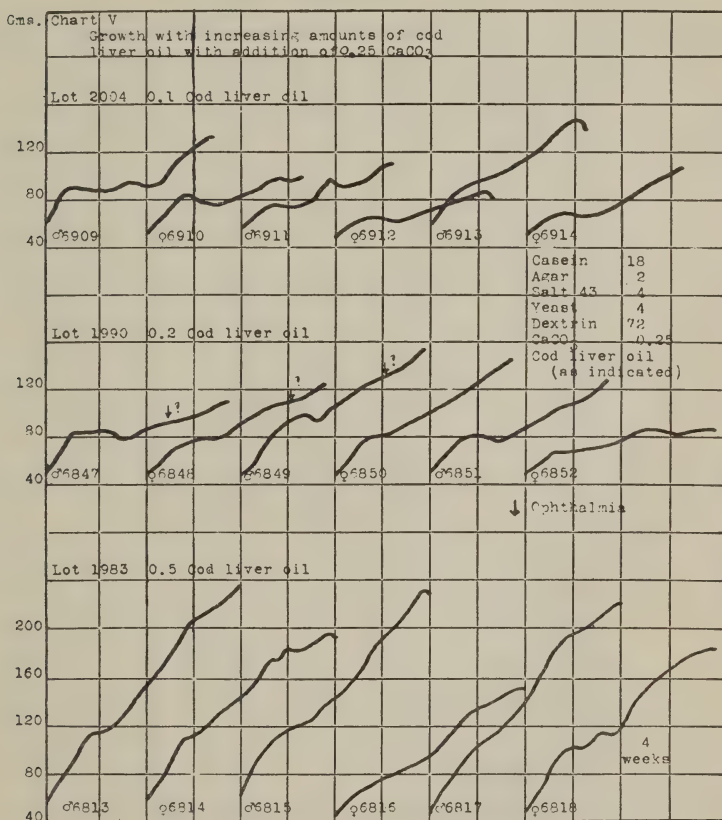 Gms. Chart V
Growth with increasing amounts of cod
liver oil with addition of 0.25 CaCO3
Lot 2004 0.1 Cod liver oil
120
80
40
♂6909 ♀6910 ♂6911 ♀6912 ♂6913 ♀6914
Casein 18
Agar 2
Salt 43 4
Yeast 4
Dextrin 72
CaCO3 0.25
Cod liver oil
(as indicated)
Lot 1990 0.2 Cod liver oil
120
80
40
↓? ↓? ↓?
♂6847 ♀6848 ♂6849 ♀6850 ♂6851 ♀6852
↓ Ophthalmia
Lot 1983 0.5 Cod liver oil
200
160
120
80
40
4
weeks
♂6813 ♀6814 ♂6815 ♀6816 ♂6817 ♀6818